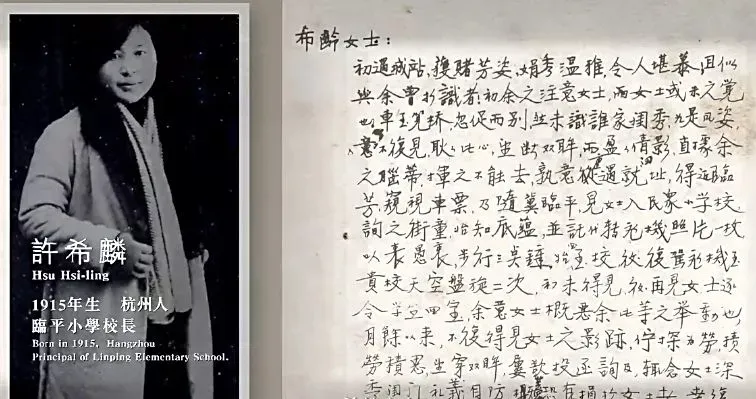 許希麟
Hsu Hsi-ling
1915年生 杭州人
臨平小學校長
Born in 1915, Hangzhou
Principal of Linping Elementary School.
希齡女士：
初遇城站，獲睹芳姿，娟秀溫雅，令人堪慕，且似
與余曾相識者，初余之注意女士，而女士或未之覺
也，車至筧橋，忽促而別，然未識誰家閨秀，如是風姿，
意不復見，耿耿此心，坐此雙眸，而盈盈倩影，直據余
之腦蒂，揮之不能去，孰意過就，得近臨
芳，窺視車票，及隨冀臨平，見女士入民眾小學校，
詢之街童，始知底蘊，並託代替飛機照片一枚
以表愚衷，步行三吳，校，後後駕飛機至
貴校天空盤旋二次，初未得見，後再見女士逐
令學並四室，余意女士概惡余此等之舉動也，
月餘以來，不復得見女士之影跡，佇探為勞，積
勞積思，坐穿雙眸，屢欲投函詢及，輒念女士深